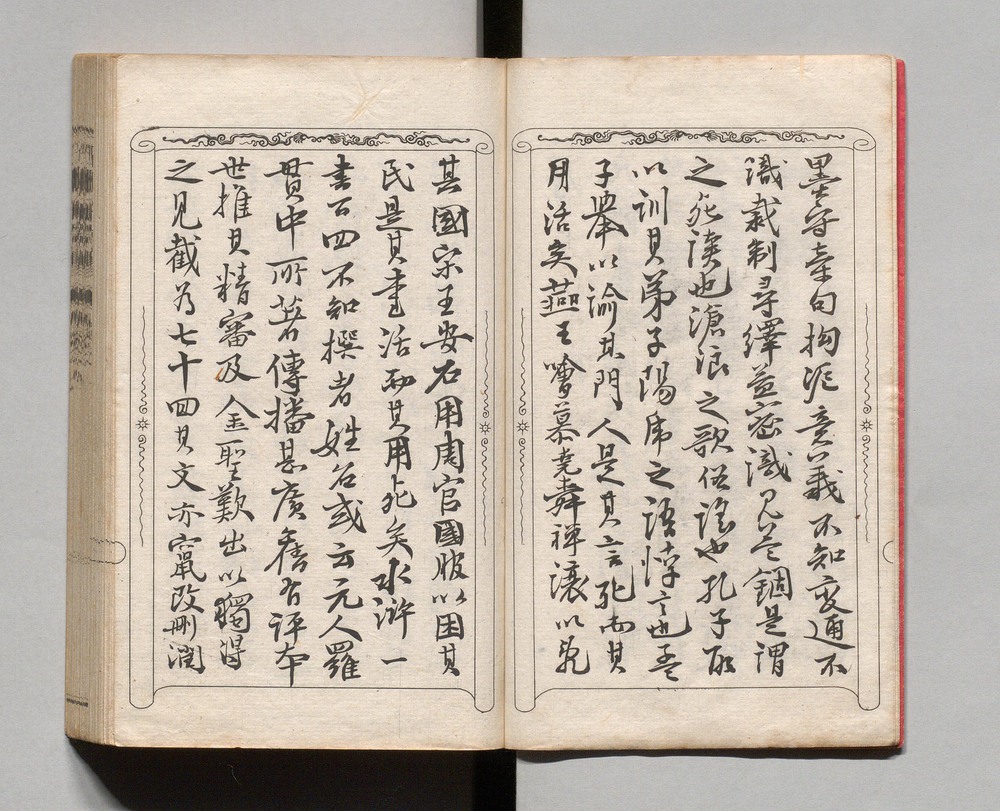 墨守章句拘泥意義不知変通不
識裁制尋繹益密識見益錮是謂
之死讀也滄浪之歌俗謠也孔子取
以訓其弟子陽虎之語悖言也孟
子舉以諭其門人是其言死而其
用活矣燕王噲慕堯舜禪讓以亂
其國宋王安石用周官國服以困其
民是其書活而其用死矣水滸一
書百四不知撰者姓名或云元人羅
貫中所著傳播甚廣舊有評本
世推其精審及金聖歎出以獨得
之見截為七十四其文亦竄改刪潤